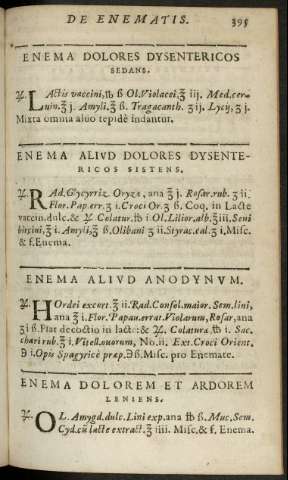 DE ENEMATIS. 395
ENEMA DOLORES DYSENTERICOS
SEDANS.
℞. LActis vaccini, ℔ ß Ol. Violacei, ℥ iij. Med. cer-
uin. ℥ j. Amyli, ℥ ß. Tragacanth. ʒ ij. Lycij, ʒ j.
Mixta omnia aluo tepidè indantur.
ENEMA ALIVD DOLORES DYSENTE-
RICOS SISTENS.
℞. RAd. Glycyrriz. Oryzæ, ana ℥ j. Rosar. rub. ʒ ii.
Flor. Pap. err. ʒ i. Croci Or. ʒ ß. Coq. in Lacte
vaccin. dulc. & ℞ Colatur. ℔ i Ol. Lilior. alb. ℥ iii. Seui
hircini, ℥ i. Amyli, ℥ ß. Olibani ʒ ii. Styrac. cal. ʒ i. Misc.
& f. Enema.
ENEMA ALIVD ANODYNVM.
℞. HOrdei excort. ℥ ii. Rad. Consol. maior. Sem. lini,
ana ℥ i. Flor. Papau. errat. Violarum, Rosar, ana
ʒ i ß. Fiat decoctio in lacte: & ℞. Colaturæ ℔ i. Sac-
chari rub. ℥ i. Vitell. ouorum, No. ii. Ext. Croci Orient.
℈ i. Opii Spagyricè præp. ℈ ß. Misc. pro Enemate.
ENEMA DOLOREM ET ARDOREM
LENIENS.
℞. OL. Amygd. dulc. Lini exp. ana ℔ ß. Muc. Sem.
Cyd. cū lacte extract. ℥ iiii. Misc. & f. Enema.